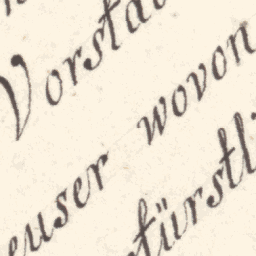 Vorstad
euser wovon
fürstl